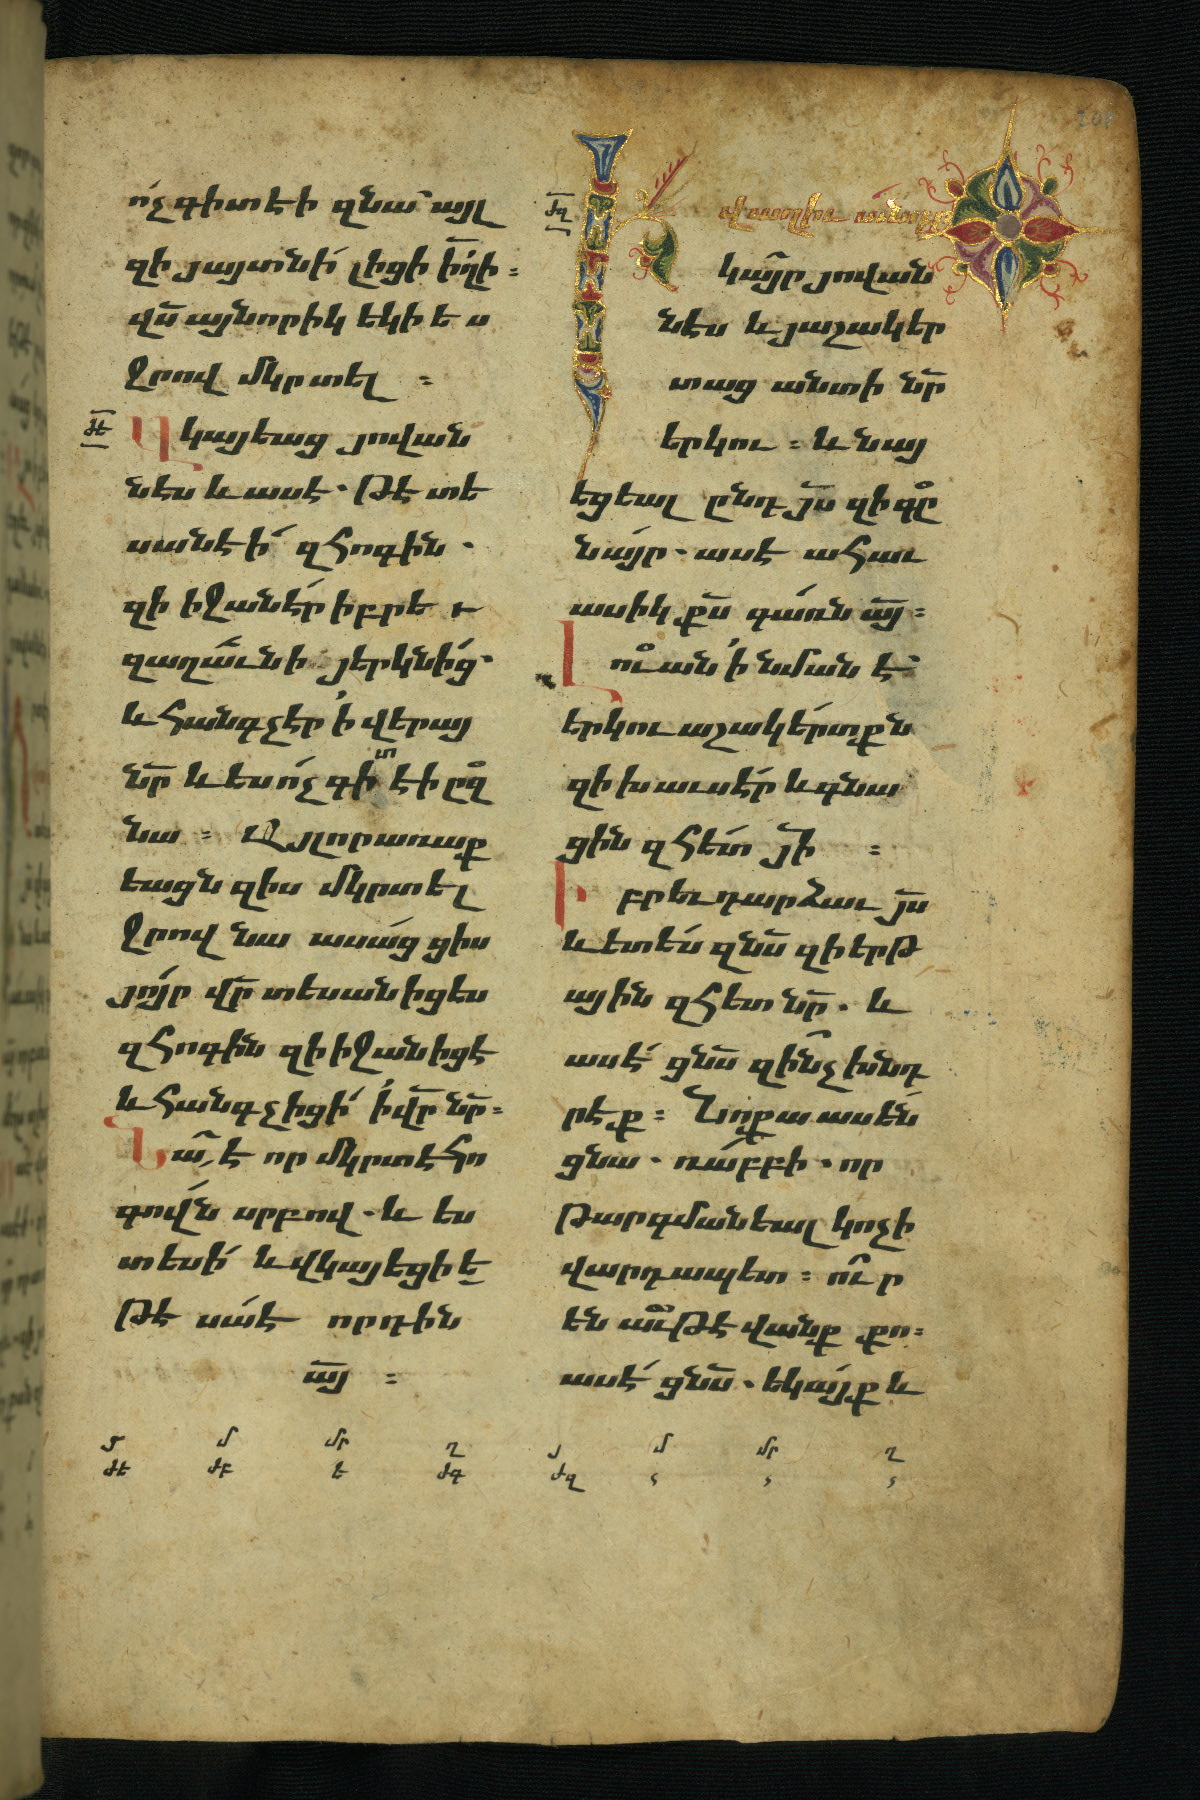 ո՛չ գիտէի զնա՝ այլ
զի յայտնի՛ լիցի ի̅է̅լի։
վս̅ այնորիկ եկի ես
ջրով մկրտել ։
ԺԵ
Վկայեաց յովան
նէս և ասէ. թէ տե
սանէի՛ զհոգին.
զի իջանէ՛ր իբրև
զաղաւնի յերկնից.
և հանգչէր ՛ի վերայ
նր̅ և ես ո՛չ գիտէի ըզ
նա ։ Այլ որ առաք
եացն զիս մկրտել
ջրով նա ասա՛ց ցիս
յո՛յր վր̅ տեսանիցես
զհոգին զի իջանիցէ
և հանգչիցի՛ ՛ի վր̅ նր̅։
Նա՛ է որ մկրտէ հո
գով՛ն սրբով. և ես
տեսի՛ և վկայեցի ե
թէ սա՛ է որդին
ա̅յ ։
ԺԶ
կայր յովան
նէս և յաշակեր
տաց անտի նր̅
երկու ։ և նայ
եցեալ ընդ յ̅ս զի գը
նա՛յր. ասէ ահաւ
ասիկ ք̅ս գառն ա̅յ։
Լուան ՛ի նմանէ
երկու աշակե՛րտքն
զի խաւսէ՛ր և գնա
ցին զհետ յ̅ի ։
Իբրև դարձաւ յ̅ս
և ետես զնս̅ զի երթ
ային զհետ նր̅. և
ասէ՛ ցնս̅ զի՞նչ խնդ
րէք ։ Նոքա ասեն
ցնա. ռա՛բբի. որ
թարգմանեալ կոչի
վարդապետ ։ ո՞ւր
են աւթէվանք քո։
ասէ՛ ցնս̅. եկա՛յք և
Յ Մ Մր Ղ Յ Մ Մր Ղ
ԺԵ ԺԲ Ե ԺԳ ԺԶ